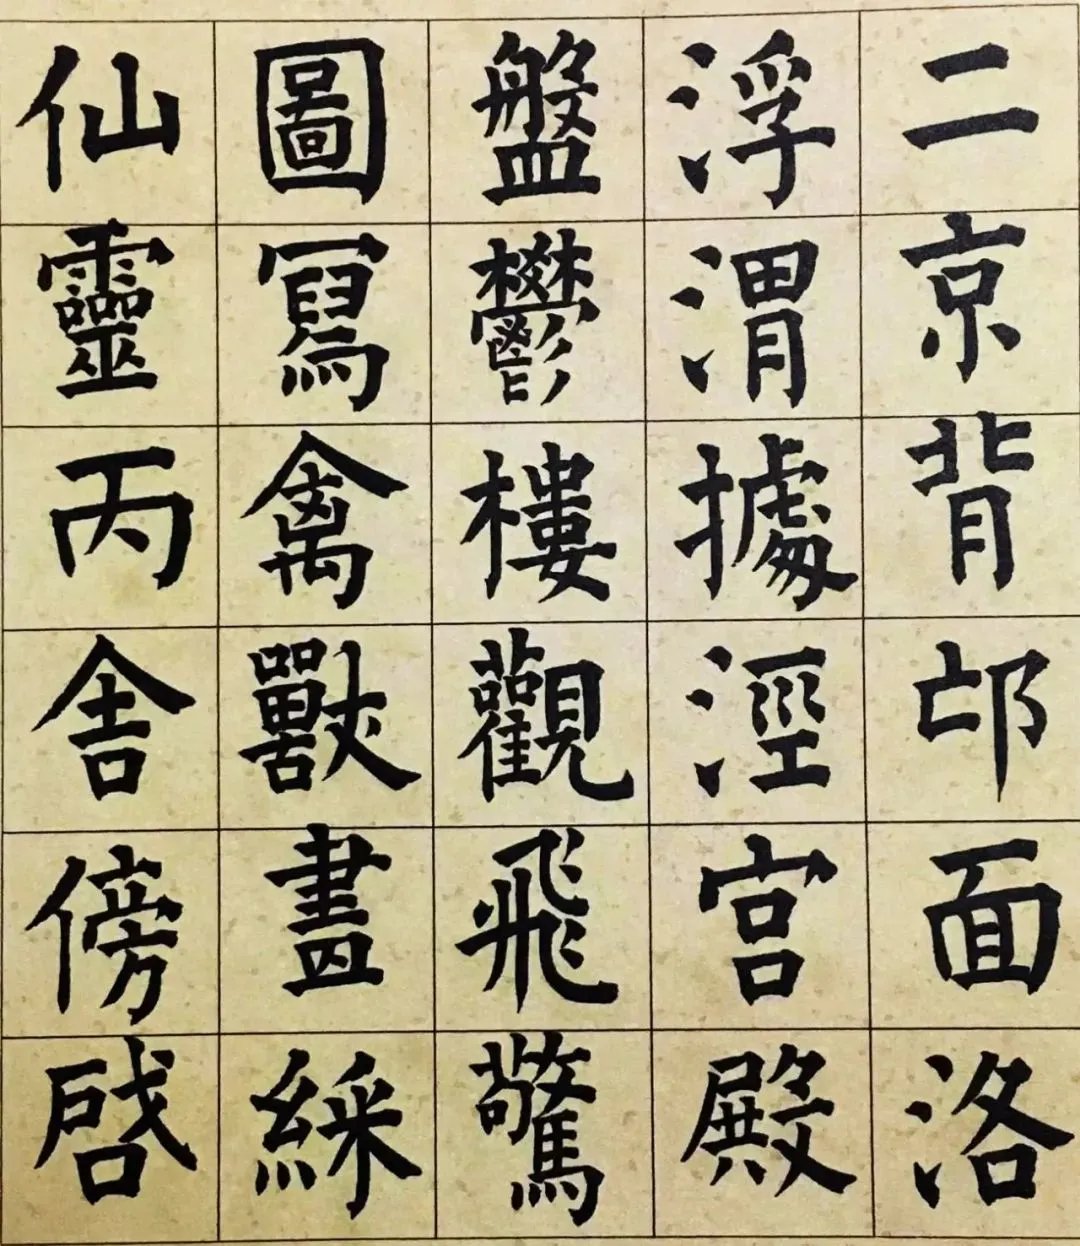 二京背邙面洛
浮渭據涇宫殿
盤鬱樓觀飛驚
圖寫禽獸畫綵
仙靈丙舍傍啓